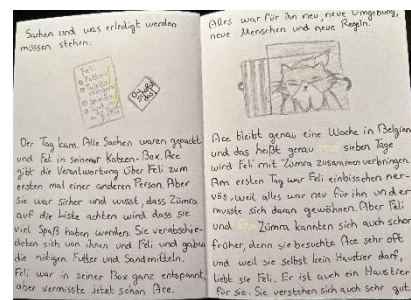 Sachen und was erledigt werden
müssen stehen.
Feli:
Futter
Du
schaffst
das!
Der Tag kam. Alle Sachen waren gepackt
und Feli in seinem Katzen-Box. Ace
gibt die Verantwortung über Feli zum
ersten mal einer anderen Person. Aber
sie war sicher und wusst, dass Zümra
auf die Liste achten wird dass sie
viel Spaß haben werden. Sie verabschie-
deten sich von ihnen und Feli und gaben
die nötigen Futter und Sandmitteln.
Feli war in seiner Box ganz entspannt,
aber vermisste jetzt schon Ace.
Alles war für ihn neu, neue Umgebung,
neue Menschen und neue Regeln.
Ace bleibt genau eine Woche in Belgien
und das heißt genau sieben Tage
wird Feli mit Zümra zusammen verbringen.
Am ersten Tag war Feli einbisschen ner-
vös, weil alles war neu für ihn und er
musste sich daran gewöhnen. Aber Feli
und Zümra kannten sich auch schon
früher, denn sie besuchte Ace sehr oft
und weil sie selbst kein Haustier darf,
liebt sie Feli. Er ist auch ein Haustier
für sie. Sie verstehen sich auch sehr gut.